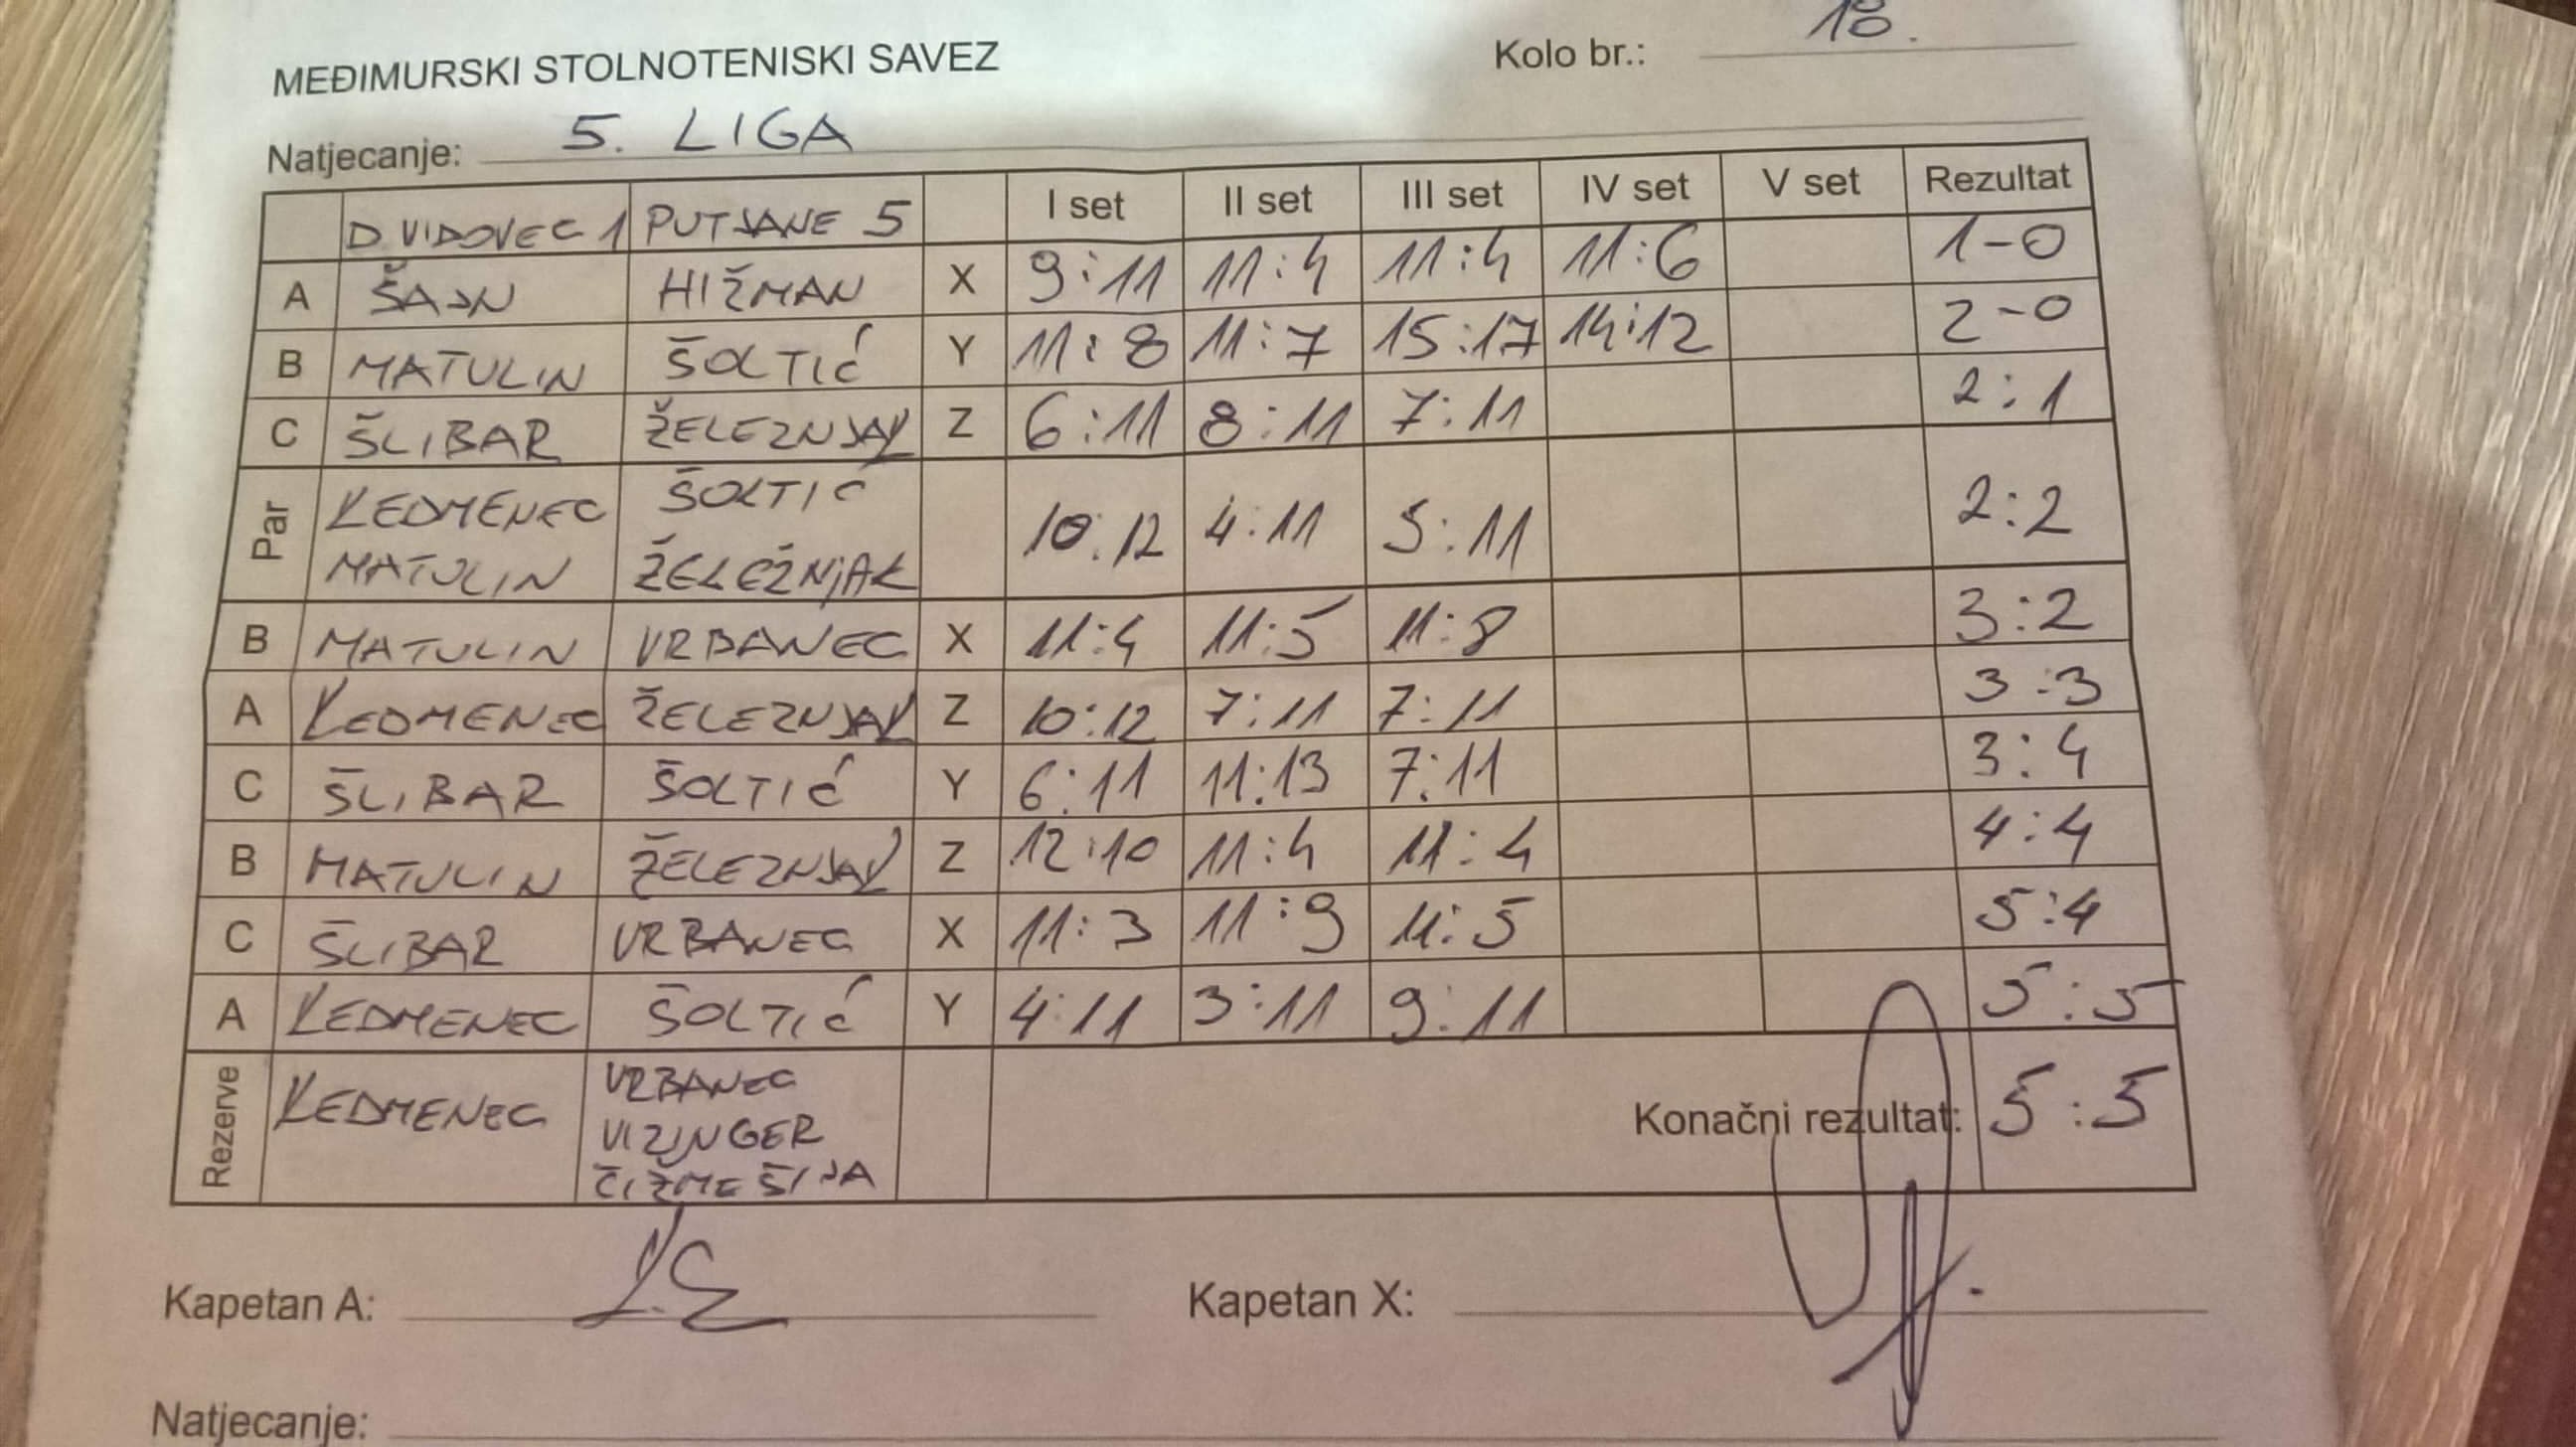 Kolo br.: 18.
MEĐIMURSKI STOLNOTENISKI SAVEZ
Natjecanje: 5. LIGA
D VIDOVEC 1 PUTJANE 5 I set II set III set IV set V set Rezultat
A ŠAJN HIŽMAN X 9:11 11:4 11:4 11:6 1-0
B MATULIN ŠOLTIĆ Y 11:8 11:7 15:17 14:12 2-0
C ŠLIBAR ŽELEZNJAK Z 6:11 8:11 7:11 2:1
Par KEDMENEC ŠOLTIĆ 10:12 4:11 5:11 2:2
MATULIN ŽELEŽNjAK
B MATULIN VRBANEC X 11:4 11:5 11:8 3:2
A KEDMENEC ŽELEZNJAK Z 10:12 7:11 7:11 3:3
C ŠLIBAR ŠOLTIĆ Y 6:11 11:13 7:11 3:4
B MATULIN ŽELEZNJAK Z 12:10 11:4 11:4 4:4
C ŠLIBAR VRBANEC X 11:3 11:9 11:5 5:4
A KEDMENEC ŠOLTIĆ Y 4:11 3:11 9:11 5:5
Rezerve KEDMENEC VRBANEC Konačni rezultat: 5:5
VIZINGER
ČIŽMEŠIJA
Kapetan A: Kapetan X:
Natjecanje: